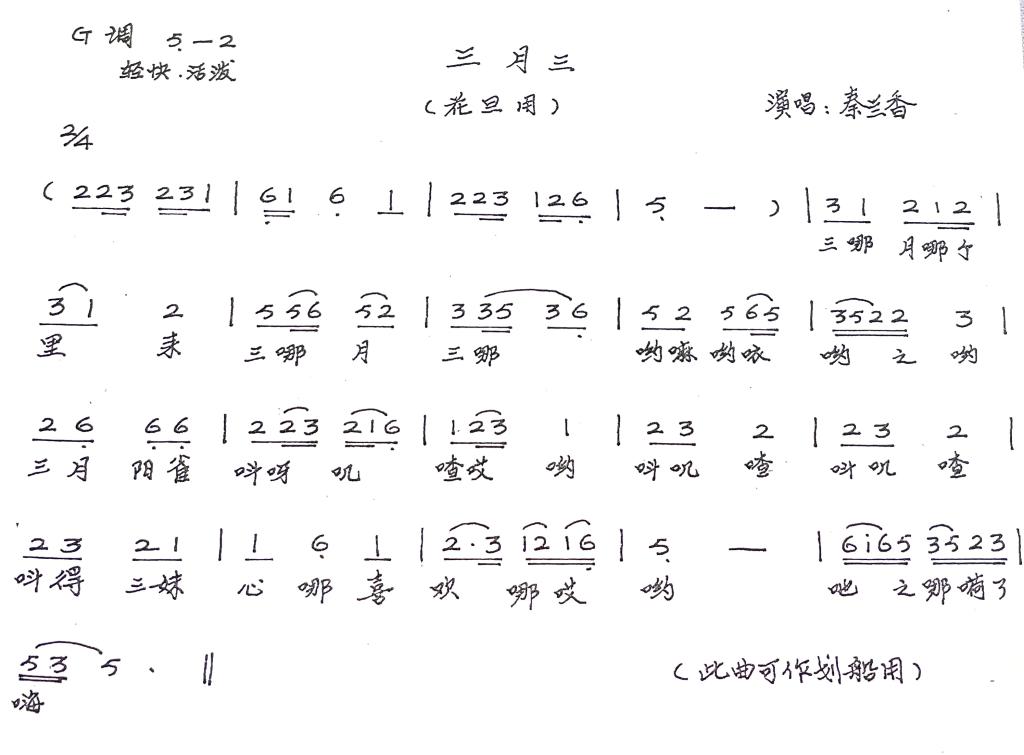 G 调 5̣ — 2
轻快·活泼
三月三
(花旦用)
演唱:秦兰香
2/4
( 223 231 | 6̣1 6̣ 1 | 223 126̣ | 5̣ — ) | 31 212 |
三哪 月哪个
31 2 | 556 52 | 335 36̣ | 52 565 | 3522 3 |
里 来 三哪 月 三哪 哟嘛哟咴 哟 之 哟
26̣ 6̣6̣ | 223 216̣ | 1 23 1 | 23 2 | 23 2 |
三月 阳雀 呌呀 叽 喳哎 哟 呌叽 喳 呌叽 喳
23 21 | 1 6̣ 1 | 2·3 12 16̣ | 5̣ — | 6i65 3523 |
呌得 三妹 心 哪 喜 欢 哪 哎 哟 吔 之哪嗬了
53 5 · ‖
嗨
(此曲可作划船用)